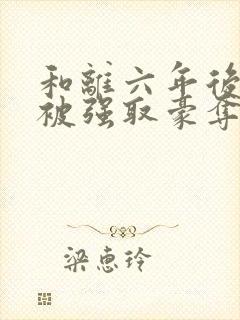 和離六年後
被强取豪奪
梁惠玲